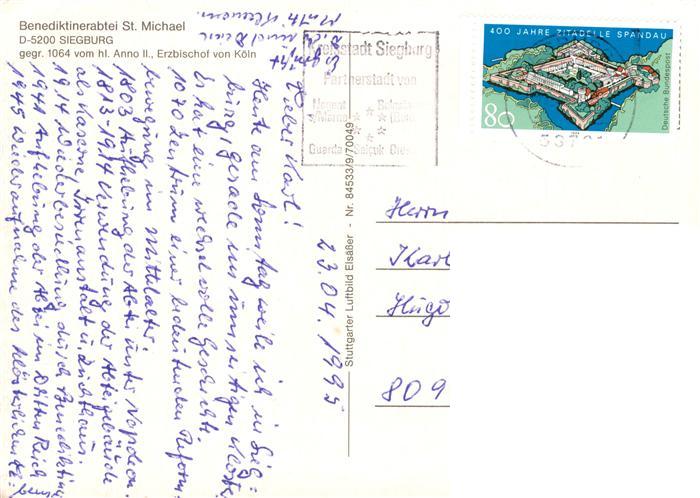 Benediktinerabtei St. Michael
D-5200 SIEGBURG
gegr. 1064 vom hl. Anno II., Erzbischof von Köln
Kreisstadt Siegburg
Partnerstadt von
Nogent
Guarda Selçuk
400 JAHRE ZITADELLE SPANDAU
Deutsche Bundespost
80
Stuttgarter Luftbild Elsäßer - Nr. 84533/9/70049
23.04.1995
Lieber Karl!
Heute am Sonntag weile ich in Sieg=
burg, gerade im umseitigen Kloster.
Es hat eine wechselvolle Geschichte.
1070 Zentrum einer bedeutenden Reform-
bewegung im Mittelalter.
1803 Aufhebung der Abtei unter Napoleon.
1813-1914 Verwendung der Abteigebäude
als Kaserne, Irrenanstalt u. Zuchthaus.
1914 Wiederbesiedlung durch Benediktiner
1941 Aufhebung der Abtei im Dritten Reich
1945 Wiederaufnahme des klösterlichen
Es grüßt
Dich
und Deine
Herrn
Karl
Hugo
809